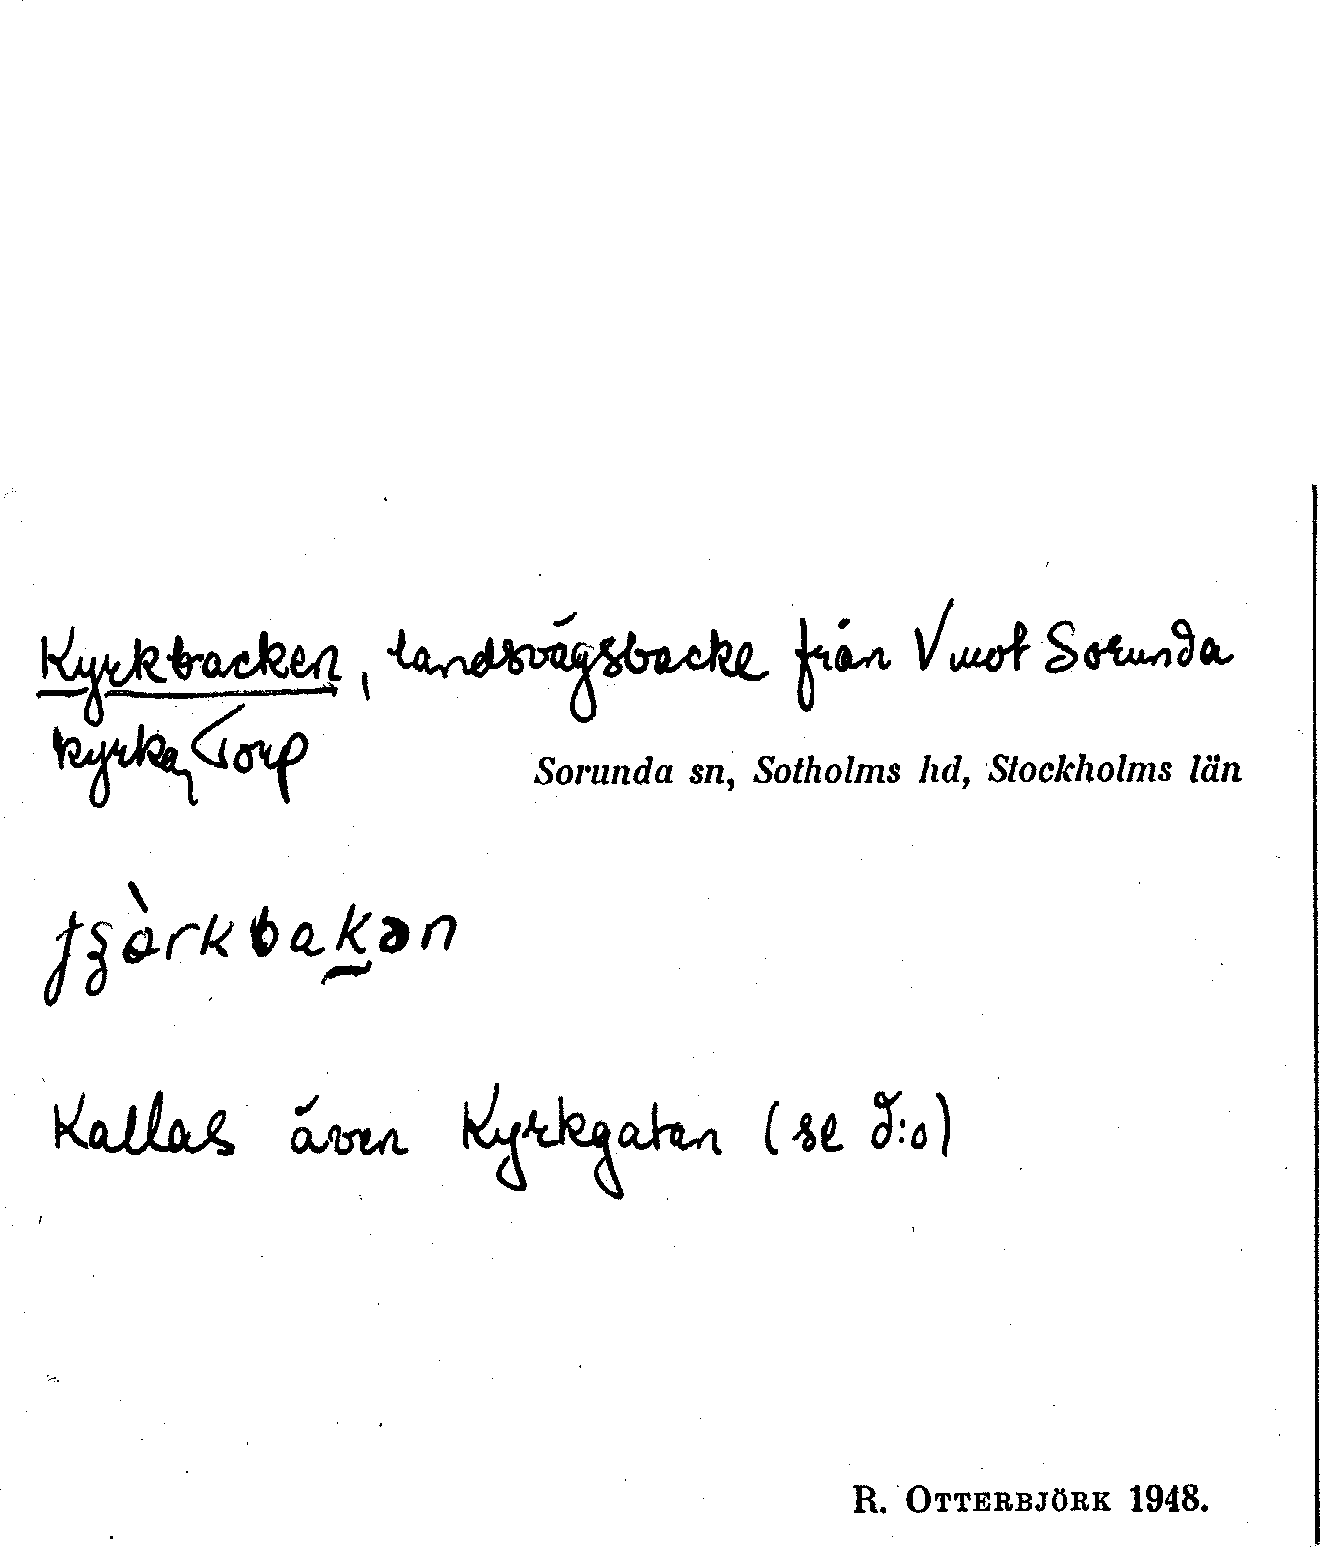 Kyrkbacken, landsvägsbacke från V mot Sorunda
kyrka, Torp
Sorunda sn, Sotholms hd, Stockholms län
Kallas även Kyrkgatan (se d:o)
R. OTTERBJÖRK 1948.